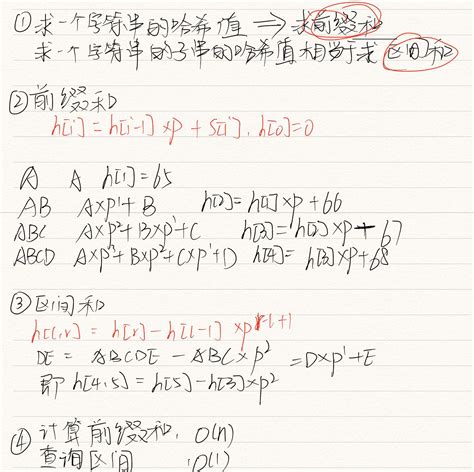 ① 求一个字符串的哈希值 ⇒ 求前缀和
求一个字符串的子串的哈希值相当于求 区间和
② 前缀和
h[i] = h[i-1] × p + s[i], h[0]=0
A A h[1]=65
AB A×p¹+B h[2]=h[1]×p+66
ABC A×p²+B×p¹+C h[3]=h[2]×p+67
ABCD A×p³+B×p²+C×p¹+D h[4]=h[3]×p+68
③ 区间和
h[l,r] = h[r]-h[l-1] × p^r-l+1
DE = ABCDE - ABC×p² = D×p¹+E
即 h[4,5] = h[5]-h[3]×p²
④ 计算前缀和, O(n)
查询区间 O(1)